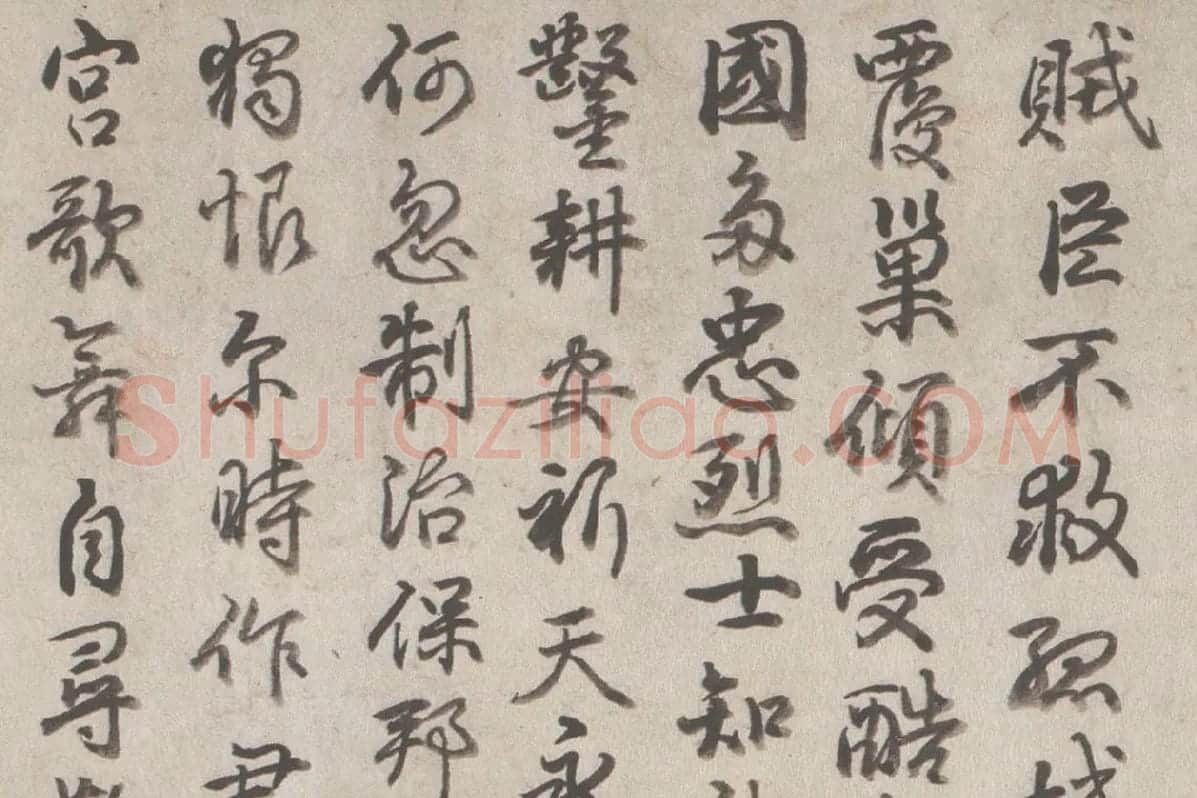 賊臣不救孤城
覆巢傾受酷
國多忠烈士知
鑿耕安祈天永
何忽制治保邦
獨恨尔時作君
宮歌舞自尋
Shufaziliao.COM